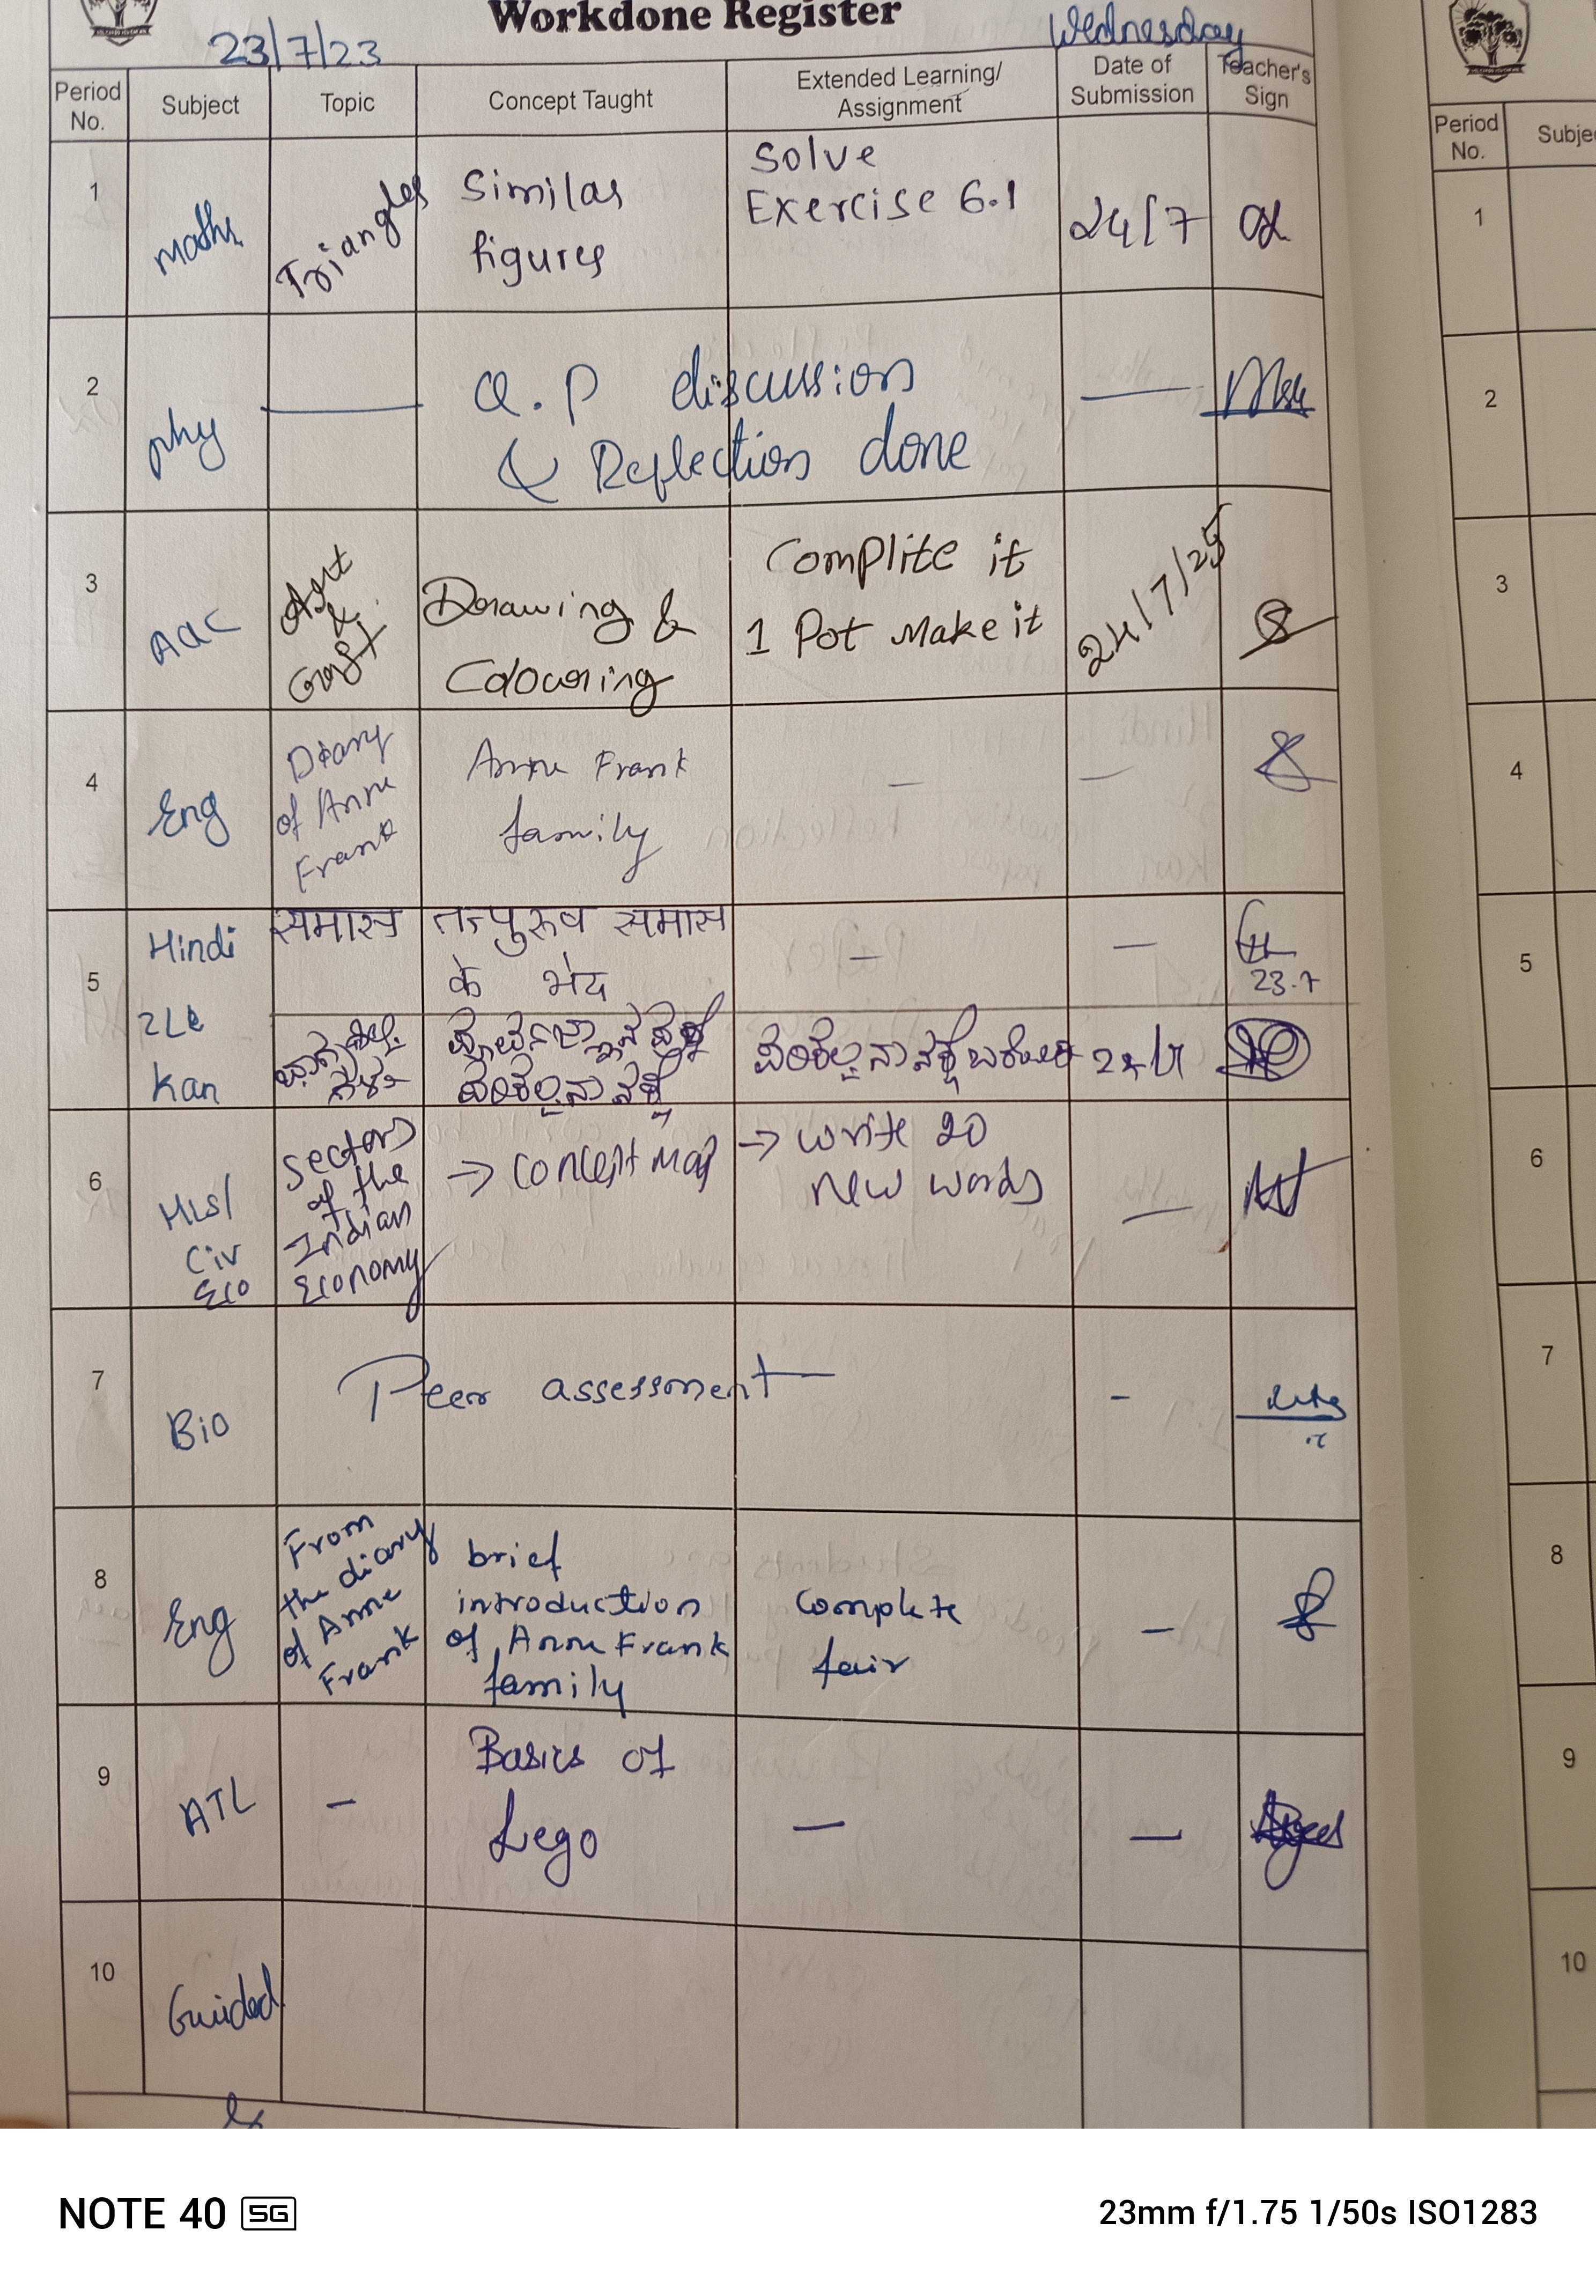 Workdone Register
23/7/23
Wednesday
Period No.
Subject
Topic
Concept Taught
Extended Learning/ Assignment
Date of Submission
Teacher's Sign
1
maths
Triangles
Similar
figures
Solve
Exercise 6.1
24/7
2
phy
Q.P discussion
& Reflection done
3
AAC
Art
&
Craft
Drawing &
Colouring
Complite it
1 Pot Make it
24/7/25
4
Eng
Diary
of Anne
Frank
Anne Frank
family
5
Hindi
समास
तत्पुरुष समास
के भेद
23.7
2Le
Kan
6
His/
Civ
Eco
Sectors
of the
Indian
Economy
→ Concept map
→ write 20
new words
7
Bio
Peer assessment
8
Eng
From
the diary
of Anne
Frank
brief
introduction
of Anne Frank
family
Complete
fair
9
ATL
Basics of
Lego
10
Guided
Period No.
Subje
1
2
3
4
5
6
7
8
9
10
NOTE 40 5G
23mm f/1.75 1/50s ISO1283